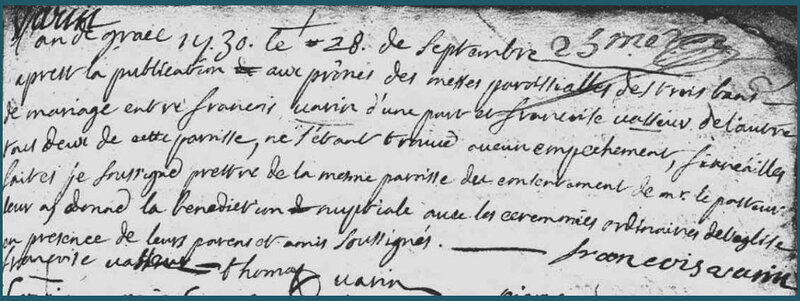 Varin
L'an de grace 1730. le 28. de Septembre
aprest la publication aux prônes des messes paroissialles des trois bans
de mariage entre francois varin d'une part et francoise vasseur de l'autre
tous deux de cette parroisse, ne s'étant trouvé aucun empechement, fiancailles
faites je soussigné prettre de la mesme parroisse du consentement de mr. le pasteur
leur ay donné la benediction nuptiale avec les ceremonies ordinaires de l'eglise
en presence de leurs parens et amis soussignés. francois varin
francoise vasseur thomas varin